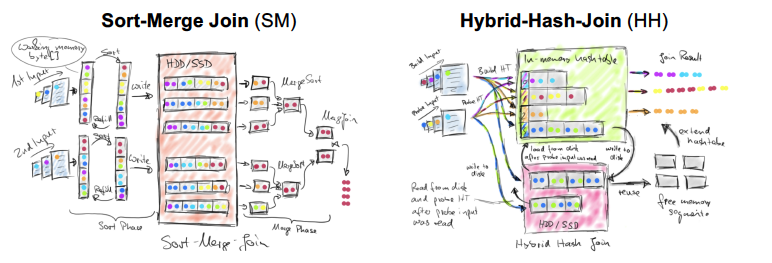 Sort-Merge Join (SM)
Working memory
byte[]
Sort
1st Input
write
Refill
2nd Input
Sort
Write
Refill
Sort Phase
HDD/SSD
MergeSort
MergeJoin
MergeSort
Merge Phase
Sort-Merge-Join
Hybrid-Hash-Join (HH)
Build Input
Build HT
Probe Input
Probe HT
In-memory hashtable
Join Result
load from disk
after probe input was read
write to
disk
write to
disk
extend
hashtable
Read from disk
and probe HT
after probe input
was read
reuse
free memory
segments
HDD/SSD
Hybrid Hash Join